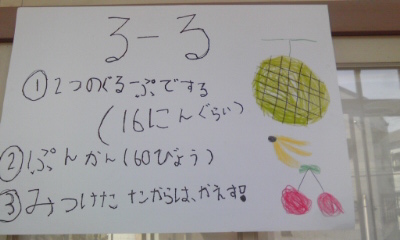 るーる
①2つのぐるーぷでする
(16にんぐらい)
②ぷんかん(60びょう)
③みつけたナンからは、かえす!